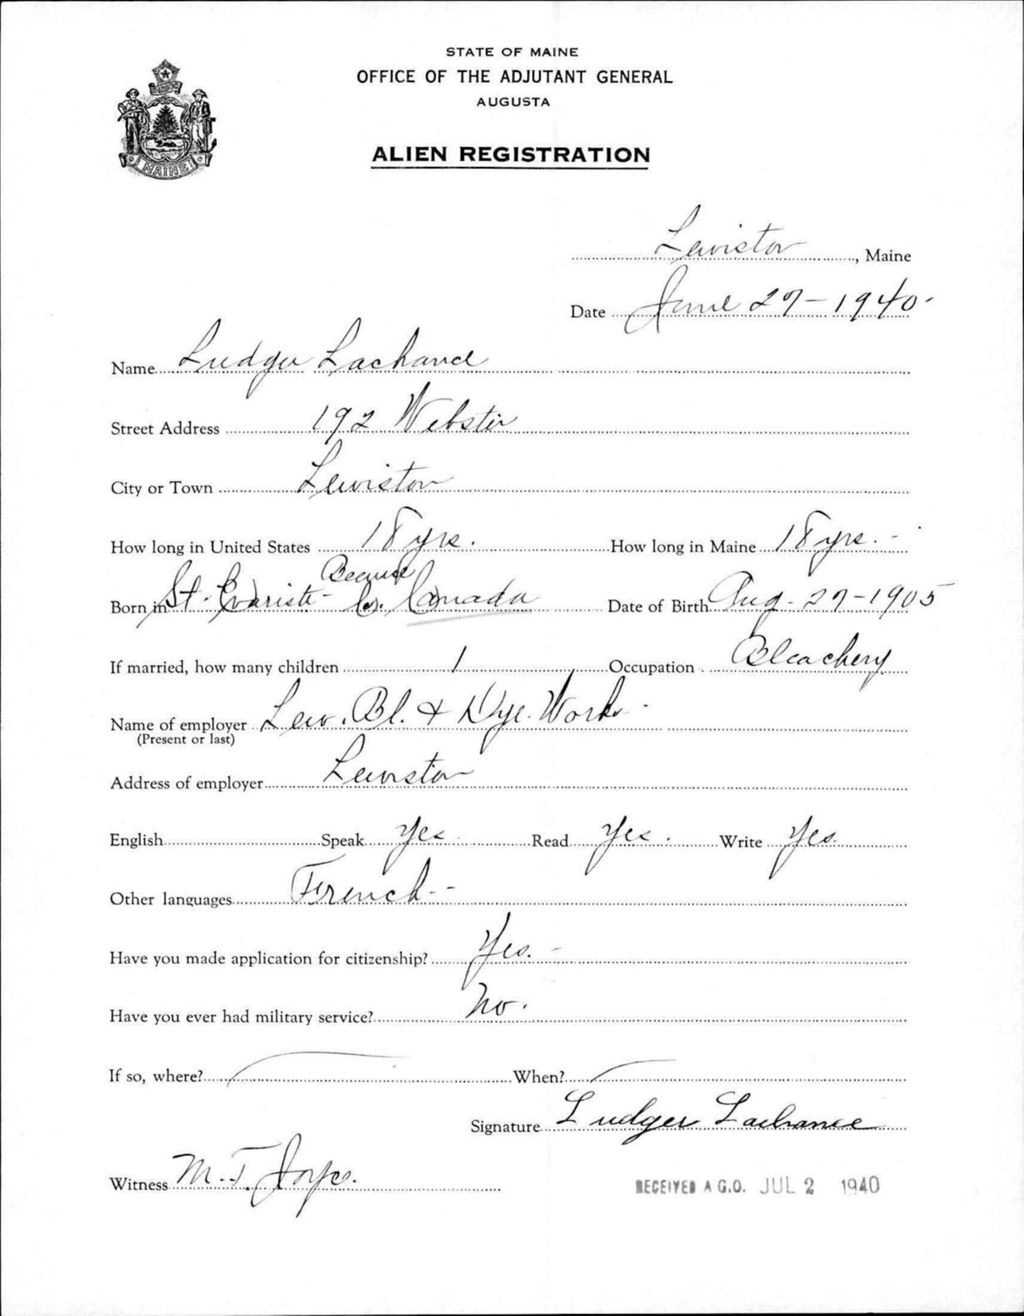 STATE OF MAINE
OFFICE OF THE ADJUTANT GENERAL
AUGUSTA
ALIEN REGISTRATION
MAINE
Lewiston, Maine
Date June 27-1940-
Name Ludger Lachance
Street Address 192 Webster
City or Town Lewiston
How long in United States 18 yrs. How long in Maine 18 yrs. -
Beauce
Born in St. Evariste- Co. Canada Date of Birth Aug. 27-1905
If married, how many children 1 Occupation Bleachery
Name of employer Lew. Bl. & Dye Works -
(Present or last)
Address of employer Lewiston
English Speak Yes Read Yes. Write Yes.
Other languages French --
Have you made application for citizenship? Yes. -
Have you ever had military service? No.
If so, where? When?
Signature Ludger Lachance
Witness M. T. Joyce.
RECEIVED A.G.O. JUL 2 1940